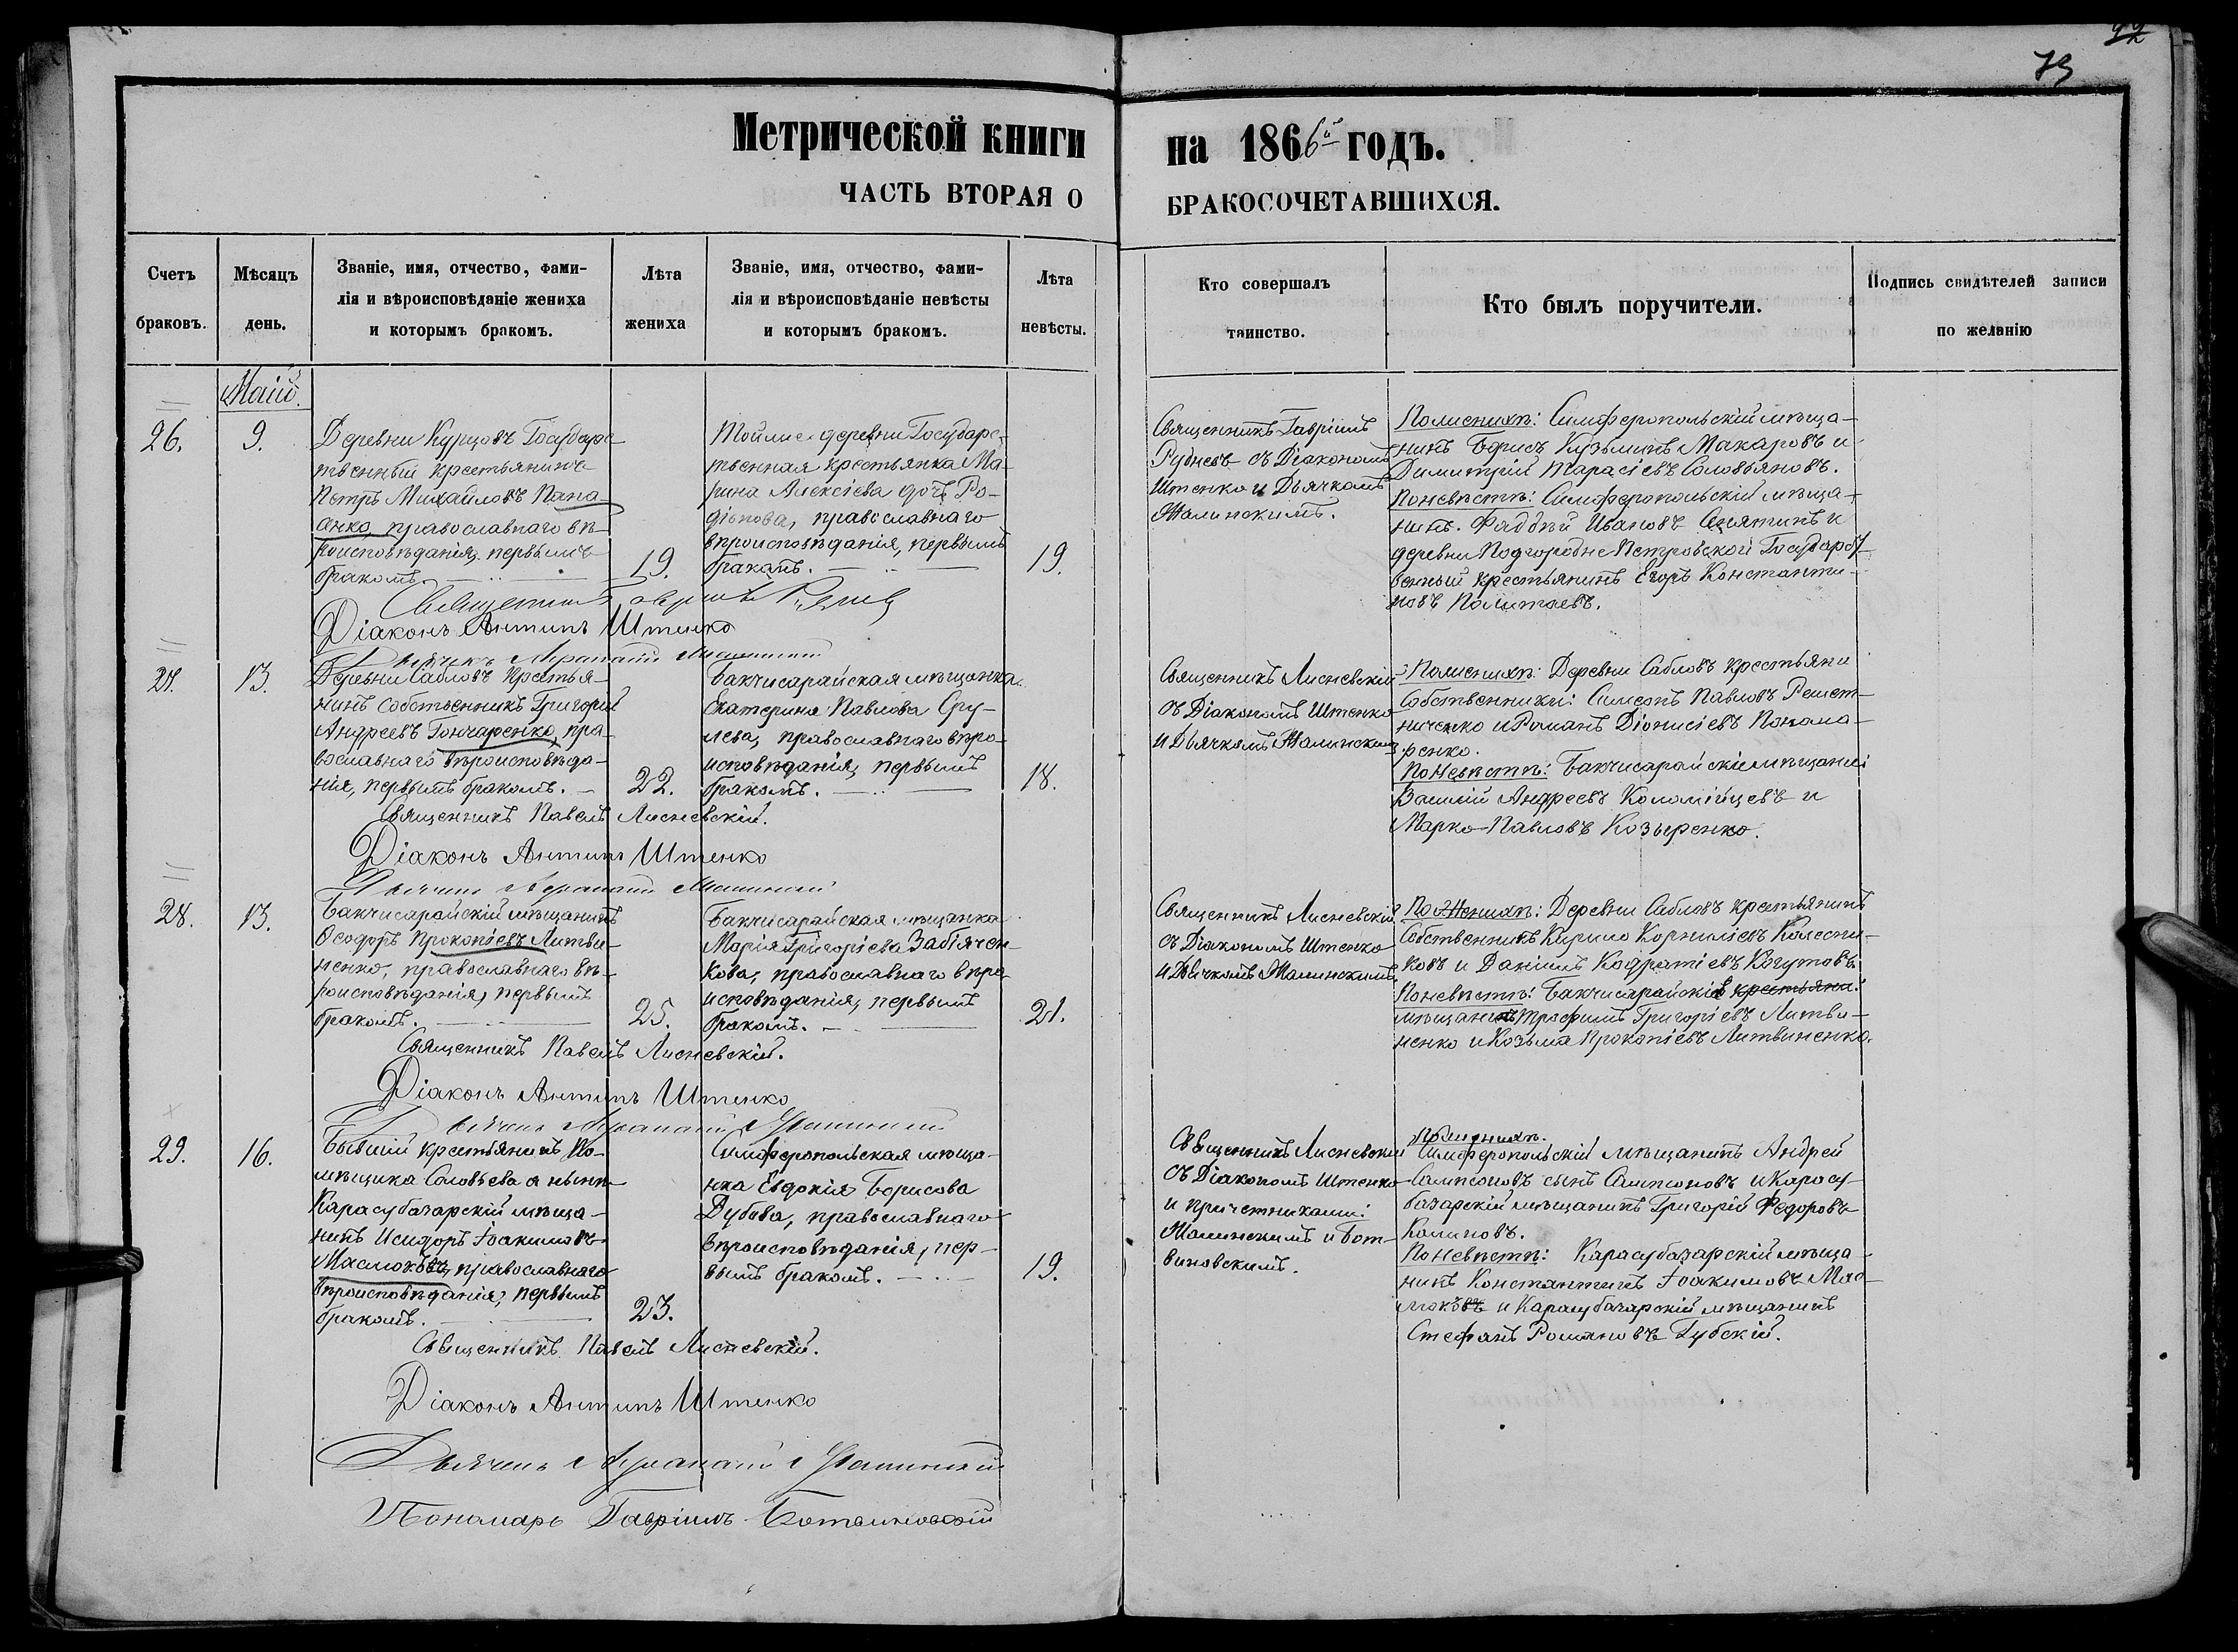 79
Метрической книги
на 1866й годъ.
ЧАСТЬ ВТОРАЯ О
БРАКОСОЧЕТАВШИХСЯ.
Счетъ браковъ.
Мѣсяцъ день.
Званіе, имя, отчество, фами-
лія и вѣроисповѣданіе жениха
и которымъ бракомъ.
Лѣта
жениха
Званіе, имя, отчество, фами-
лія и вѣроисповѣданіе невѣсты
и которымъ бракомъ.
Лѣта
невѣсты.
Кто совершалъ
таинство.
Кто былъ поручители.
Подпись свидѣтелей записи
по желанію
Маій.
26.
9.
Деревни Курцовъ Государс-
твенный крестьянинъ
Петръ Михайловъ Пана-
сенко, православнаго вѣ-
роисповѣданія, первымъ
бракомъ.
19.
Тойже деревни Государс-
твенная крестьянка Ма-
рина Алексіева дочь Ро-
діонова, православнаго
вѣроисповѣданія, первымъ
бракомъ.
19.
Священникъ Гавріилъ
Рудневъ съ Діакономъ
Штенко и Дьячкомъ
Жалинскимъ.
Поженихѣ: Симферопольскій мѣща-
нинъ Борисъ Кузьминъ Макаровъ и
Димитрій Тарасіевъ Соловьяновъ.
Поневѣстѣ: Симферопольскій мѣща-
нинъ Фаддѣй Ивановъ Снятинъ и
деревни Подгородне Петровской Государст-
венный крестьянинъ Егоръ Константи-
новъ Полтаевъ.
Священникъ Гавріилъ Рудневъ
Діаконъ Антипъ Штенко
27.
13.
Деревни Сабловъ крестья-
нинъ собственникъ Григорій
Андреевъ Гончаренко, пра-
вославнаго вѣроисповѣда-
нія, первымъ бракомъ.
22.
Бакчисарайская мѣщанка
Екатерина Павлова Сру-
лева, православнаго вѣро-
исповѣданія, первымъ
бракомъ.
18.
Священникъ Лисневскій
съ Діакономъ Штенко
и Дьячкомъ Жалинским.
Поженихѣ: Деревни Сабловъ крестьяни
Собственники: Симеонъ Павловъ Решет-
ниченко и Романъ Діонисіевъ Понома-
ренко.
Поневѣстѣ: Бакчисарайскіе мѣщани:
Василій Андреевъ Коломійцевъ и
Марко Павловъ Козыренко.
Священникъ Павелъ Лисневскій.
Діаконъ Антипъ Штенко
28.
13.
Бакчисарайскій мѣщанинъ
Ѳеодоръ Прокопіевъ Литви-
ненко, православнаго вѣ-
роисповѣданія, первымъ
бракомъ.
25.
Бакчисарайская мѣщанка
Марія Григоріева Забіячен-
кова, православнаго вѣро-
исповѣданія, первымъ
бракомъ.
21.
Священникъ Лисневскій
съ Діакономъ Штенко
и Дьячкомъ Жалинскимъ
Поженихѣ: Деревни Сабловъ крестьянинъ
Собственникъ Кирило Корниліевъ Колесни-
ковъ и Даніилъ Кодратіевъ Когутовъ
Поневѣстѣ: Бакчисарайскіе крестьяни:
мѣщани Трофимъ Григоріевъ Литви-
ненко и Козьма Прокопіевъ Литвиненко.
Священникъ Павелъ Лисневскій.
Діаконъ Антипъ Штенко
29.
16.
Бывшій крестьянинъ По-
мѣщика Соловьева а нынѣ
Карасубазарскій мѣща-
нинъ Исидоръ Іоакимовъ
Маслоковъ, православнаго
вѣроисповѣданія, первымъ
бракомъ.
23.
Симферопольская мѣща-
нка Евдокія Борисова
Дубова, православнаго
вѣроисповѣданія, пер-
вымъ бракомъ.
19.
Священникъ Лисневскій
съ Діакономъ Штенко
и причетниками:
Жалинскимъ и Бот-
виновскимъ.
Поженихѣ.
Симферопольскій мѣщанинъ Андрей
Сампсоновъ сынъ Сампсоновъ и Карасу-
базарскій мѣщанинъ Григорій Федоровъ
Калиновъ.
Поневѣстѣ: Карасубазарскій мѣща-
нинъ Константинъ Іоакимовъ Мас-
локовъ и Карасубазарскій мѣщанинъ
Стефанъ Романовъ Губскій.
Священникъ Павелъ Лисневскій.
Діаконъ Антипъ Штенко
Пономарь Гавріилъ Ботвиновскій